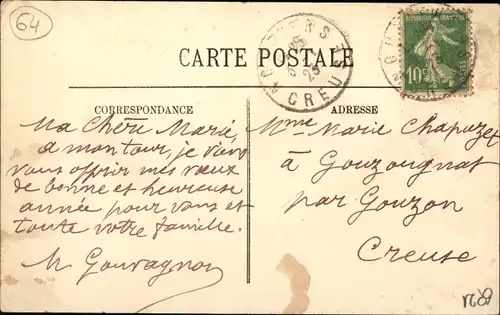 64
CARTE POSTALE
CORRESPONDANCE
ADRESSE
CREUSE
25
REPUBLIQUE FRANCAISE
10c
Ma Chère Marie
a mon tour, je viens
vous offrir mes vœux
de bonne et heureuse
année pour vous et
toute votre famille.
M Gouvagnon
Mme Marie Chapuzet
à Gouzougnat
par Gouzon
Creuse